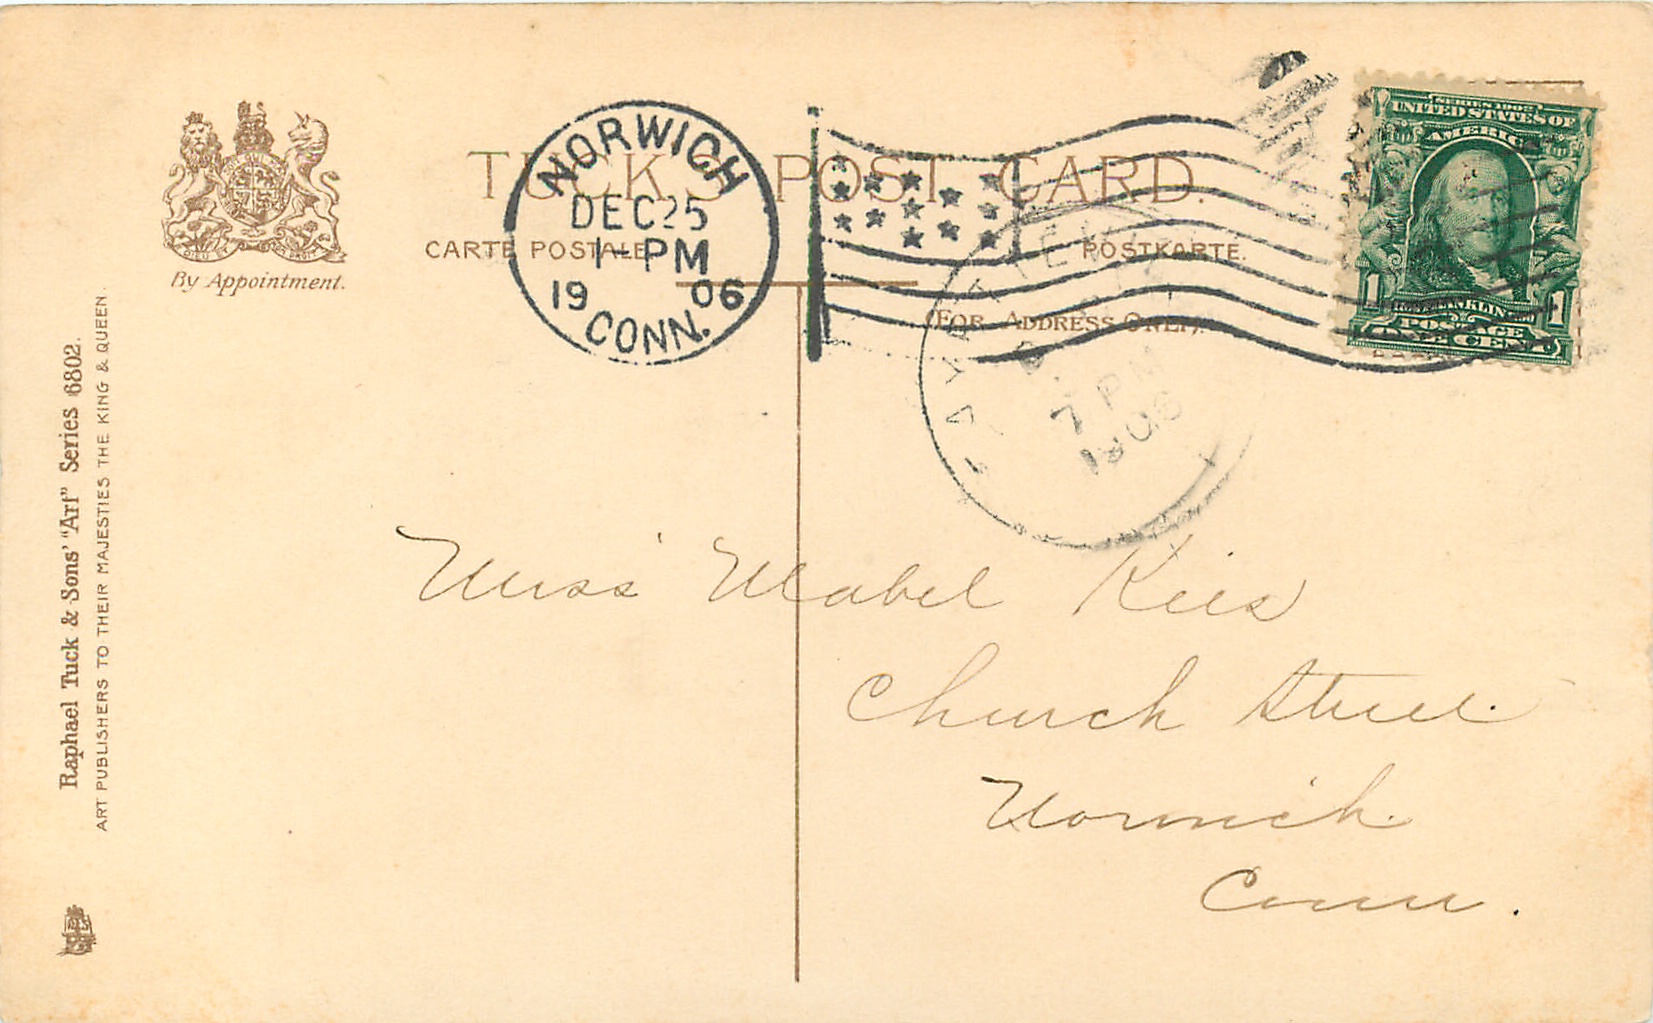 TUCK'S POST CARD.
CARTE POSTALE
POSTKARTE.
(FOR ADDRESS ONLY).
By Appointment.
NORWICH
DEC 25
1-PM
1906
CONN.
7 PM
1906
SERIES 1902
UNITED STATES OF
AMERICA
1 1
POSTAGE
ONE CENT
Raphael Tuck & Sons' "Art" Series 6802.
ART PUBLISHERS TO THEIR MAJESTIES THE KING & QUEEN.
Miss Mabel Kies
Church Street.
Norwich.
Conn.